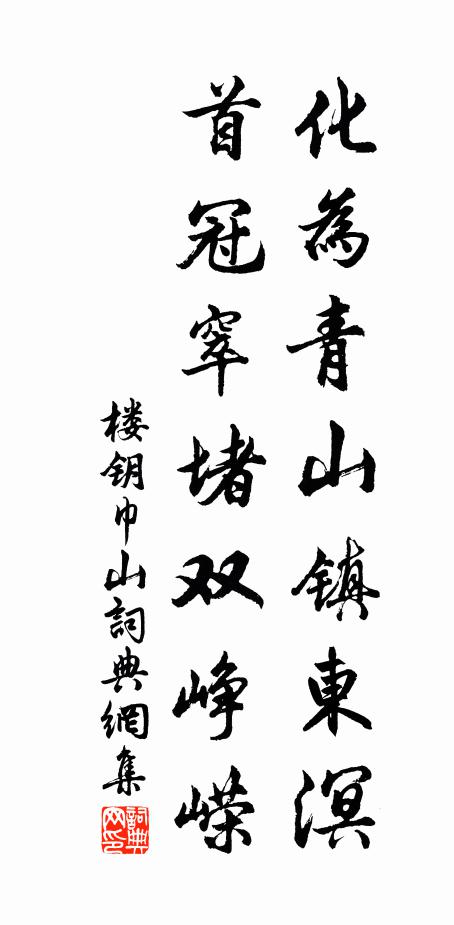 化為青山镇東溟
首冠窣堵双峥嵘
楼钥巾山詞典網集
詞典网印